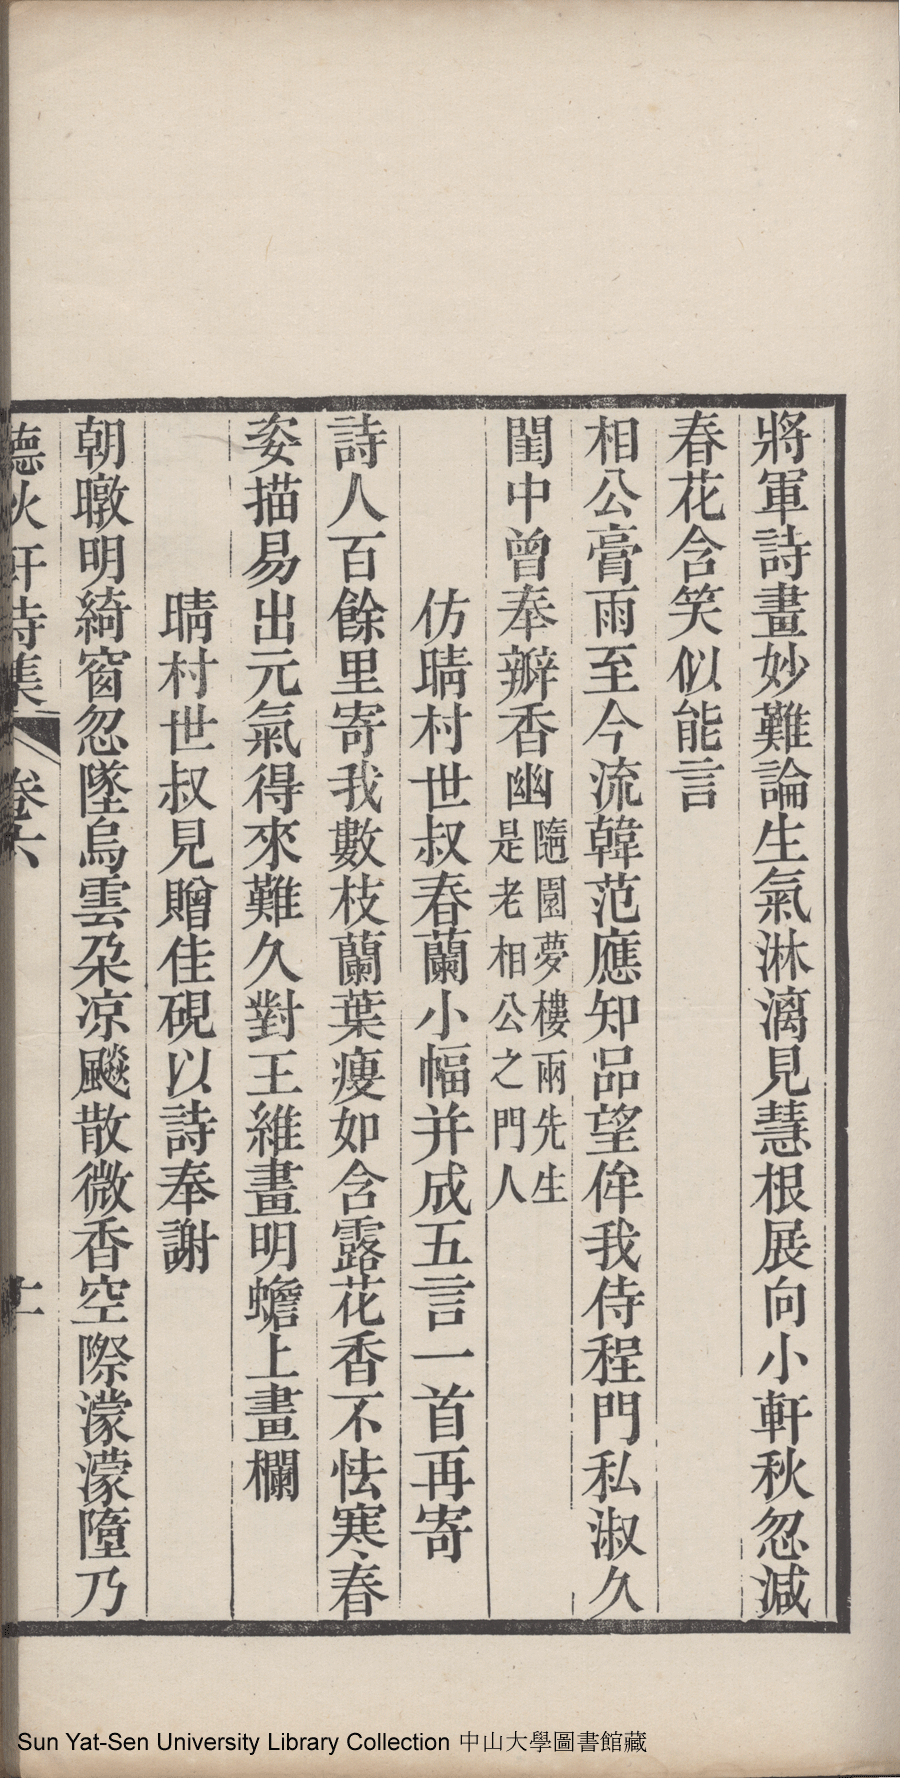 將軍詩畫妙難論生氣淋漓見慧根展向小軒秋忽減
春花含笑似能言
相公膏雨至今流韓范應知品望侔我侍程門私淑久
閨中曾奉瓣香幽隨園夢樓兩先生是老相公之門人
仿晴村世叔春蘭小幅并成五言一首再寄
詩人百餘里寄我數枝蘭葉痩如含露花香不怯寒春
姿描易出元氣得來難久對王維畫明蟾上畫欄
晴村世叔見贈佳硯以詩奉謝
朝暾明綺窗忽墜烏雲朶凉飈散微香空際濛濛墮乃
德秋軒詩集 卷六
Sun Yat-Sen University Library Collection 中山大學圖書館藏